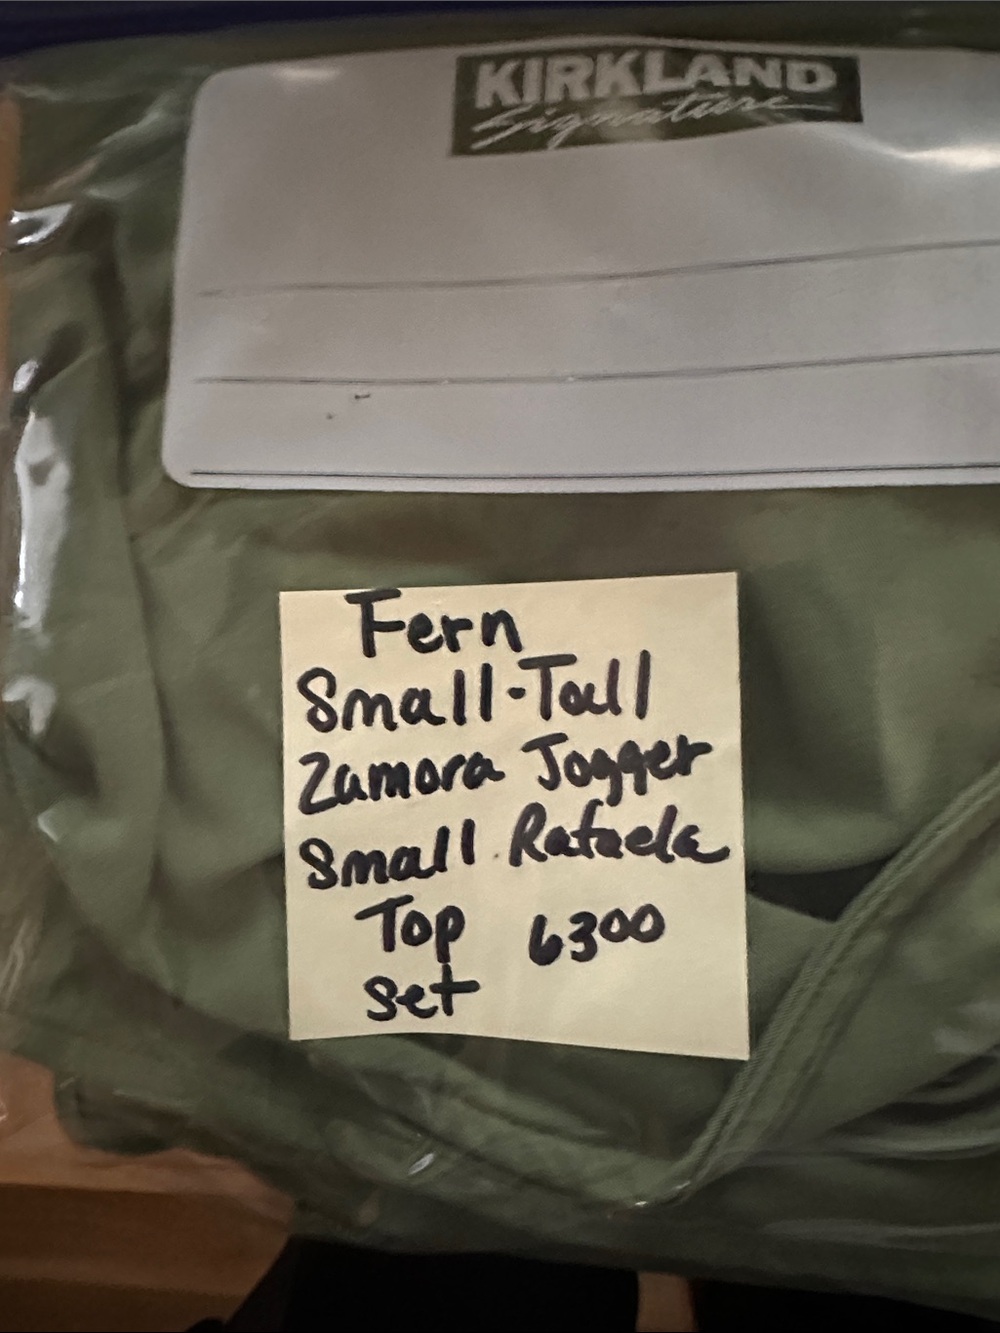 KIRKLAND
Signature
Fern
Small-Tall
Zamora Jogger
Small Rafaela
Top 6300
set